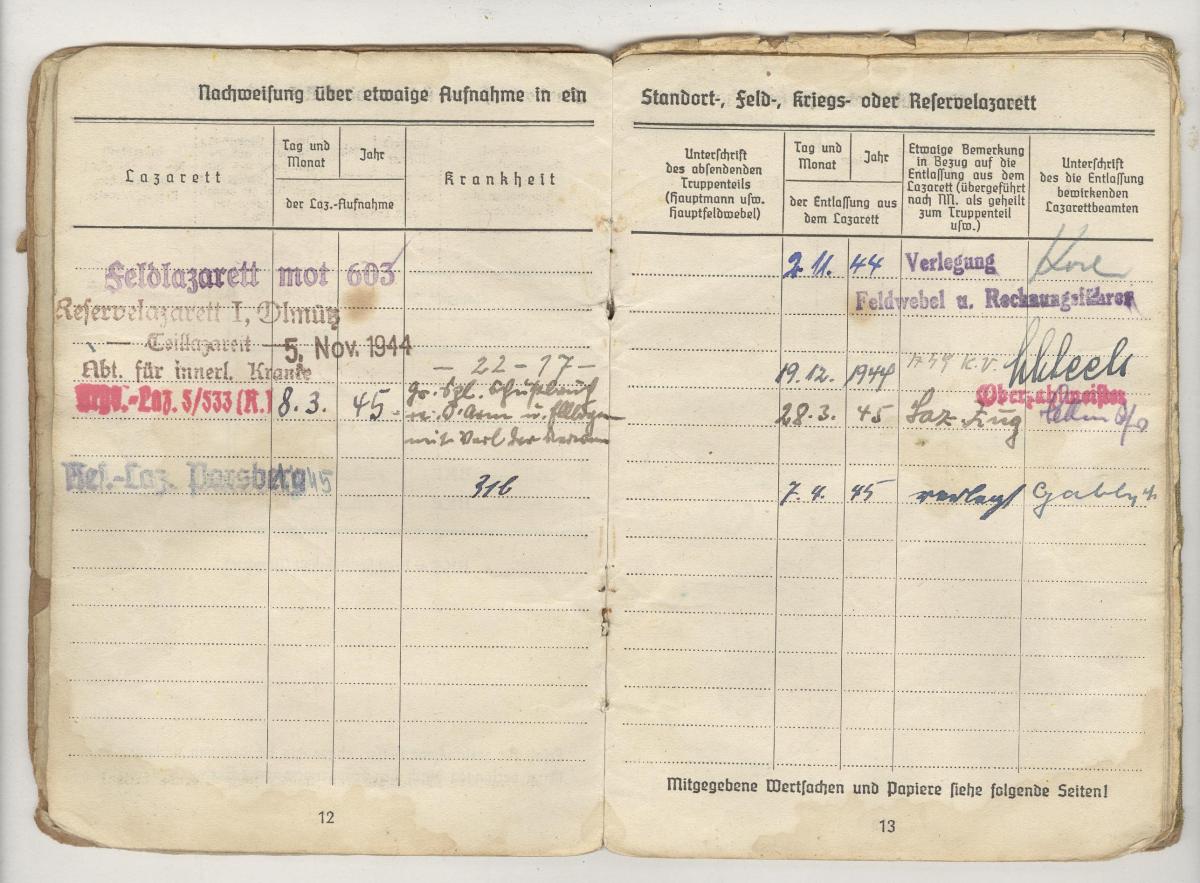 Nachweisung über etwaige Aufnahme in ein
Lazarett
Tag und Monat
Jahr
der Laz.-Aufnahme
Krankheit
Feldlazarett mot 603
Reservelazarett I, Olmütz
— Teillazarett —
5. Nov. 1944
Abt. für innerl. Kranke
— 22 - 17 —
8.3. 45
Laz. 5/533 (R.)
mit Verl. der
Res.-Laz. Parsberg 45
31b
12
Standort-, Feld-, Kriegs- oder Reservelazarett
Unterschrift
des absendenden
Truppenteils
(Hauptmann usw.
Hauptfeldwebel)
Tag und Monat
Jahr
der Entlassung aus
dem Lazarett
Etwaige Bemerkung
in Bezug auf die
Entlassung aus dem
Lazarett (übergeführt
nach NN. als geheilt
zum Truppenteil
usw.)
Unterschrift
des die Entlassung
bewirkenden
Lazarettbeamten
2.11. 44 Verlegung
Feldwebel u. Rechnungsführer
19.12. 1944 k.v.
Oberzahlmeister
28.3. 45 Laz. Zug
7.4. 45 verlegt
Mitgegebene Wertsachen und Papiere siehe folgende Seiten!
13